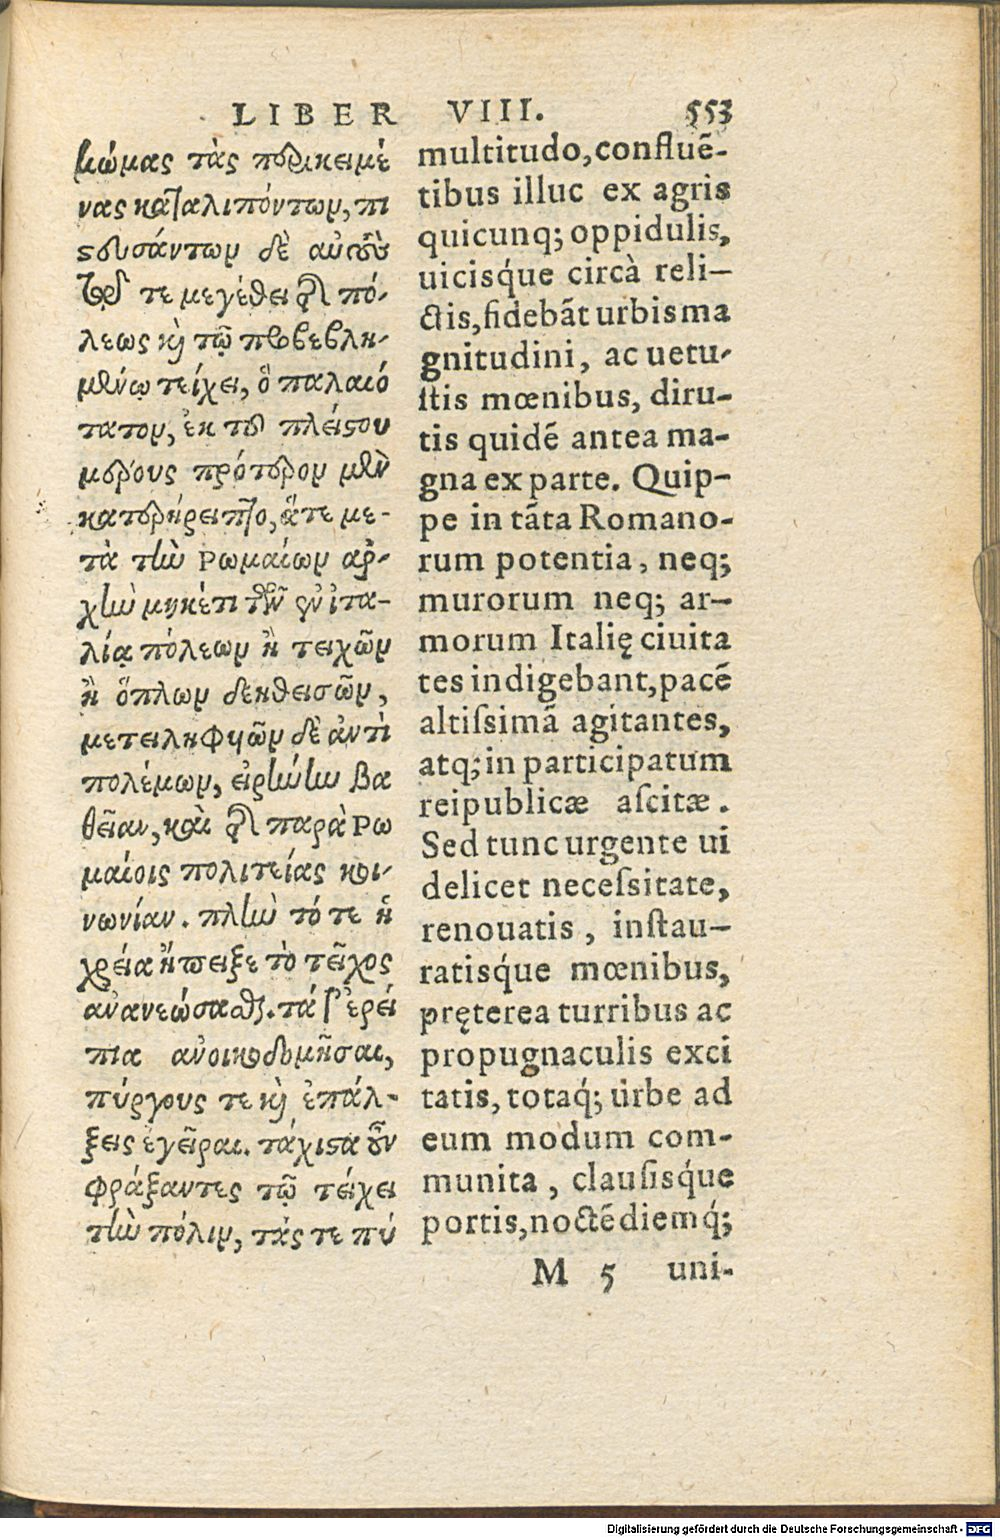 LIBER VIII. 553
κώμας τὰς περικειμέ
νας καταλιπόντων, πι
ϛευσάντων δὲ αὐτοῦ
τῷ τε μεγέθει τῆς πό-
λεως καὶ τῷ προβεβλη-
μένῳ τείχει, ὃ παλαιό
τατον, ἐκ τοῦ πλείϛου
μέρους πρότερον μὲν
κατερήρειπτο, ἅτε με-
τὰ τὴν Ρωμαίων αρ-
χὴν μηκέτι τῶν ἐν ἰτα-
λίᾳ πόλεων ἢ τειχῶν
ἢ ὅπλων δεηθεισῶν,
μετειληφυῶν δὲ ἀντὶ
πολέμων, εἰρήνην βα
θεῖαν, καὶ τῆς παρὰ Ρω
μαίοις πολιτείας κοι-
νωνίαν. πλὴν τό τε ἡ
χρεία ἤπειξε τὸ τεῖχος
ανανεώσασθαι. τά τ' ἐρεί
πια ανοικοδομῆσαι,
πύργους τε καὶ ἐπάλ-
ξεις ἐγεῖραι. τάχιϛα οὖν
φράξαντες τῷ τείχει
τὴν πόλιν, τάς τε πύ
multitudo, confluē-
tibus illuc ex agris
quicunq; oppidulis,
uicisq́ue circà reli-
ctis, fidebāt urbis ma
gnitudini, ac uetu-
stis mœnibus, diru-
tis quidē antea ma-
gna ex parte. Quip-
pe in tāta Romano-
rum potentia, neq;
murorum neq; ar-
morum Italię ciuita
tes indigebant, pacē
altiſsimā agitantes,
atq; in participatum
reipublicæ aſcitæ.
Sed tunc urgente ui
delicet neceſsitate,
renouatis, inſtau-
ratisq́ue mœnibus,
pręterea turribus ac
propugnaculis exci
tatis, totaq́; urbe ad
eum modum com-
munita, clauſisq́ue
portis, noctē diemq́;
M 5 uni-
Digitalisierung gefördert durch die Deutsche Forschungsgemeinschaft - DFG